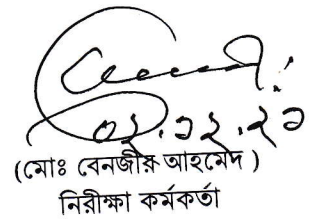 ০২.১২.২১
(মোঃ বেনজীর আহমেদ )
নিরীক্ষা কর্মকর্তা